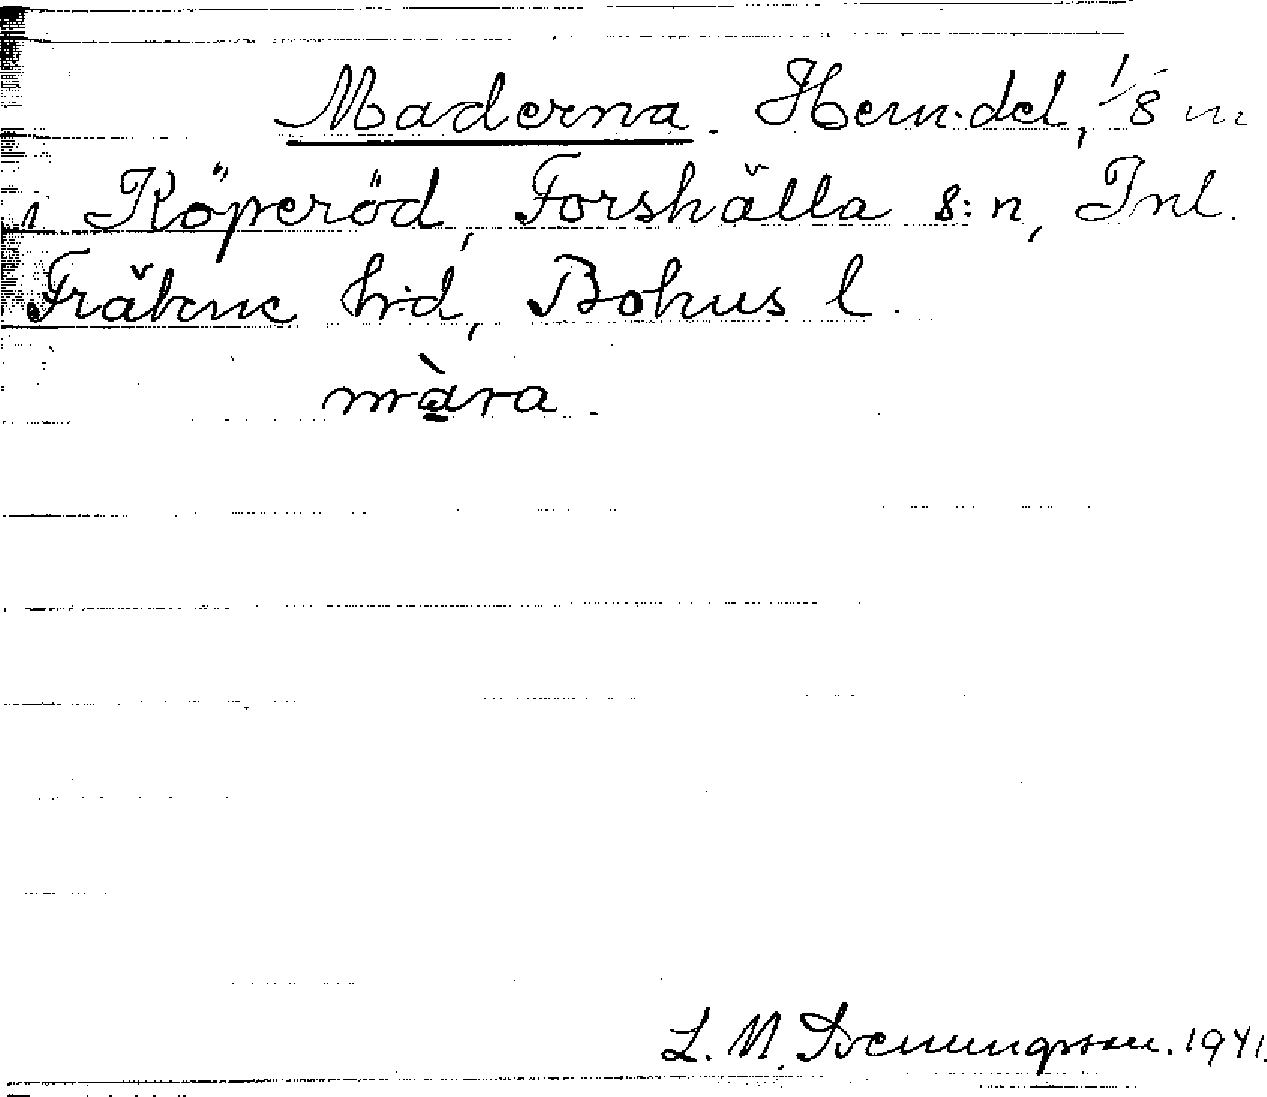 Maderna. Hem.del, 1/8 m
i Köperöd, Forshälla s:n, Inl.
Fräkne h:d, Bohus l.
màra.
L. N. Svenungsson. 1941.